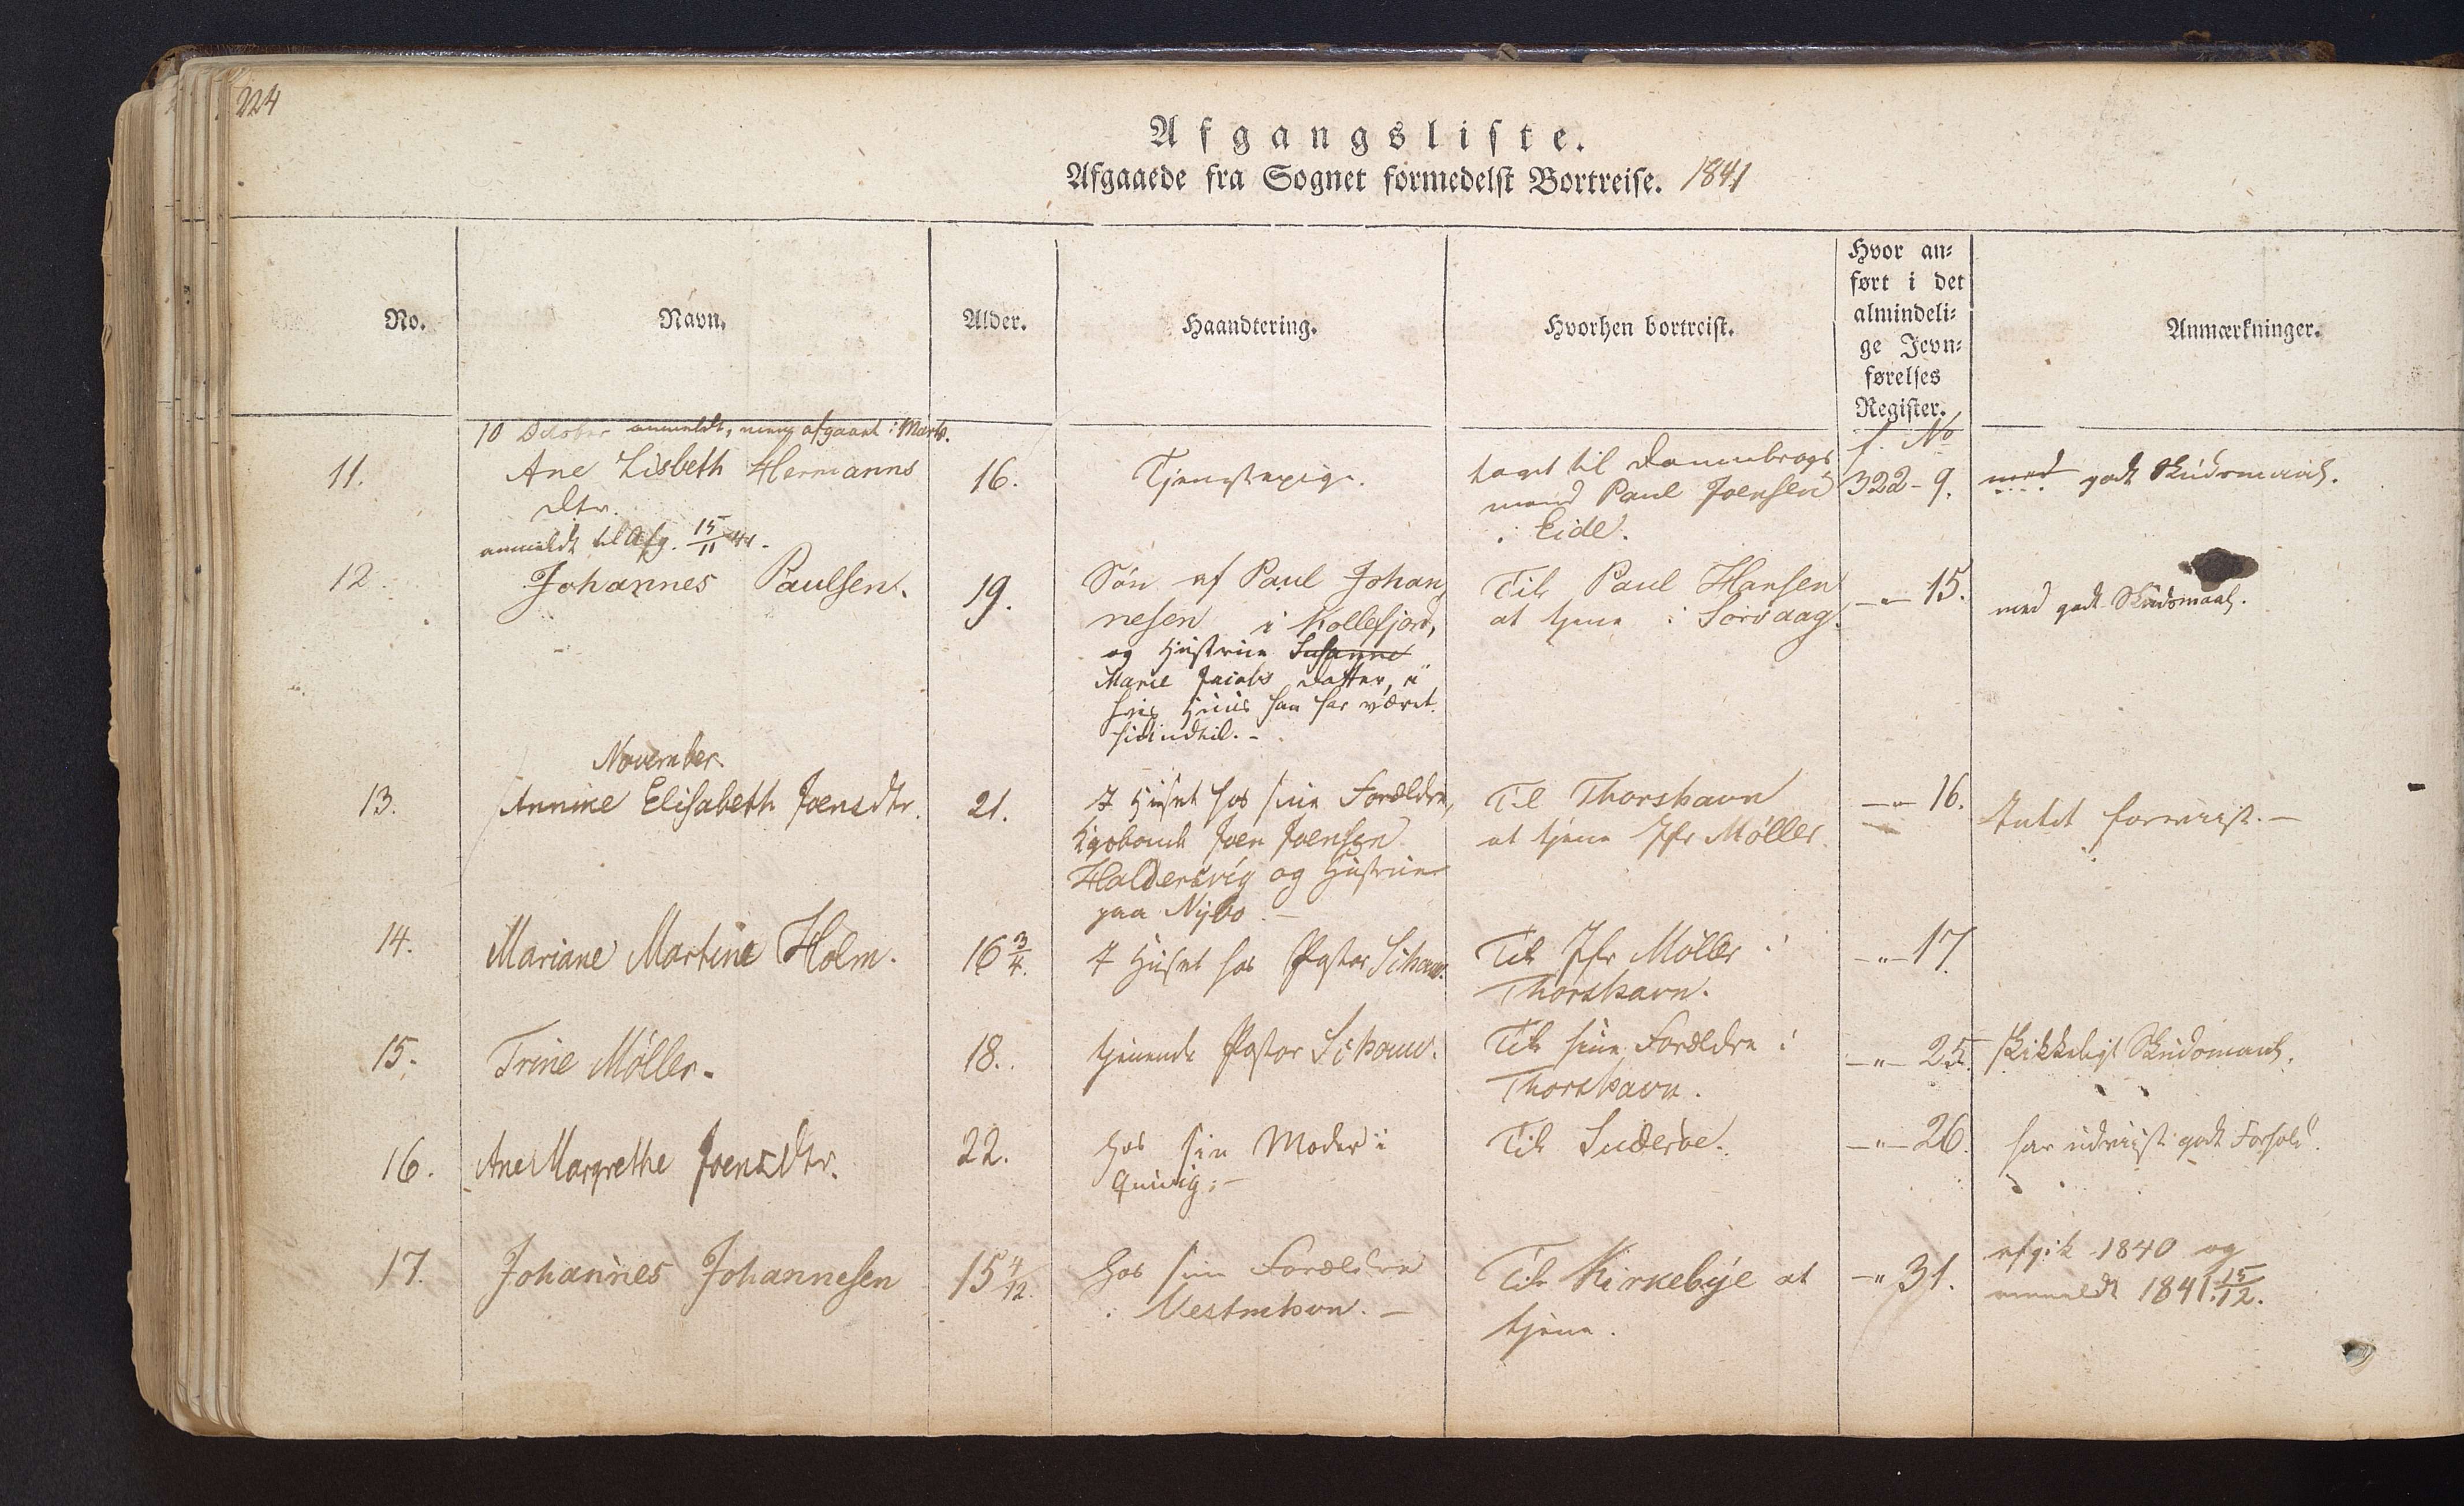 224
Afgangsliste.
Afgaaede fra Sognet formedelst Bortreise. 1841
No.
Navn.
Alder.
Haandtering.
Hvorhen bortreist.
Hvor an-
ført i det
almindeli-
ge Jevn-
førelses
Register.
Anmærkninger.
10 October anmeldt, men afgaaet i Marts.
11.
Ane Lisbeth Hermanns
Dtr.
16.
Tjenestepige.
taget til Dannebrogs
mand Paul Joensen
i Eide.
f. No
322-9.
med godt Skudsmaal.
anmeldt til Afg. 15/11 41.
12.
Johannes Paulsen.
19.
Søn af Paul Johan
nesen i Kollefjord,
og Hustrue Susanne
Marie Jacobs Datter, i
hvis Huus han har været
hidindtil.-
Til Paul Hansen
at tjene i Sørvaag.
-"- 15.
med godt Skudsmaal.
November.
13.
Annike Elisabeth Joensdtr.
21.
I Huset hos sine Forældre,
Joen Joensen
Haldersvig og Hustrue
paa Nybo.-
Til Thorshavn
at tjene Jfr Møller.
-"- 16.
Intet forviist.-
14.
Mariane Martine Holm.
16 3/4.
I Huset hos Pastor Schouw.
Til Jfr Møller i
Thorshavn.
-"- 17.
15.
Trine Møller.
18.
tjenende Pastor Schouw.
Til sine Forældre i
Thorshavn.
-"- 25.
skikkeligt Skudsmaal.
16.
Ane Margrethe Joensdtr.
22.
hos sin Moder i
Qvivig.-
Til Suderøe.
-"- 26.
har udviist godt Forhold.
17.
Johannes Johannesen
15 4/12.
hos sine Forældre
i Vestmhavn.-
Til Kirkebye at
tjene.
-" 31.
afgik 1840 og
anmeldt 1841 15/12.